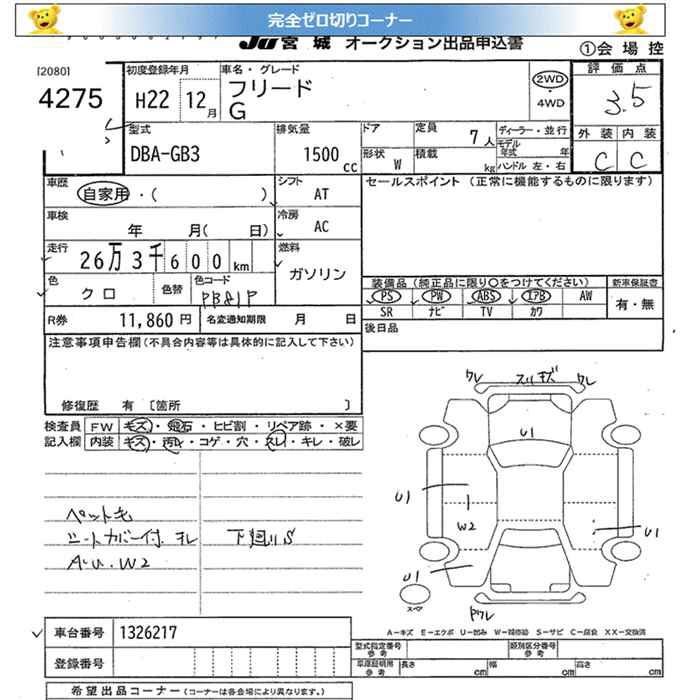 完全ゼロ切りコーナー
JU 宮城 オークション出品申込書
①会場控
[2080]
4275
初度登録年月
H22 12月
車名・グレード
フリード
G
2WD
・
4WD
評価点
3.5
外装 内装
C C
型式
DBA-GB3
排気量
1500 CC
ドア
定員
7人
形状
W
積載
kg
ディーラー・並行
モデル年式 年
ハンドル 左・右
車歴
自家用・( )
シフト
AT
セールスポイント (正常に機能するものに限ります)
車検
年 月( 日)
冷房
AC
走行
26万3千600km
燃料
ガソリン
色
クロ
色替
色コード
PB81P
装備品 (純正品に限り○をつけてください)
新車保証書
PS PW ABS エアB AW
有・無
SR ナビ TV カワ
R券 11,860円
名変通知期限 月 日
後日品
注意事項申告欄(不具合内容等は具体的に記入して下さい)
修復歴 有 〔箇所 〕
検査員
記入欄
FW キズ・飛石・ヒビ割・リペア跡・×要
内装 キズ・汚れ・コゲ・穴・スレ・キレ・破レ
ワレ スリキズ ワレ
U1
U1
W2
U1
U1
ワレ
スペア
ペット毛
シートカバー付 ヨレ 下廻りS
A.U.W2
A−キズ E−エクボ U−凹み W−補修跡 S−サビ C−腐食 XX−交換済
車台番号 1326217
登録番号
型式指定番号 参考
類別区分番号 参考
車庫証明用 参考
長さ cm 幅 cm 高さ cm
希望出品コーナー (コーナーは各会場により異なります。)